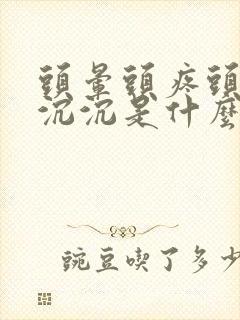 頭暈頭疼頭
沉沉是什麼
豌豆喫了多少